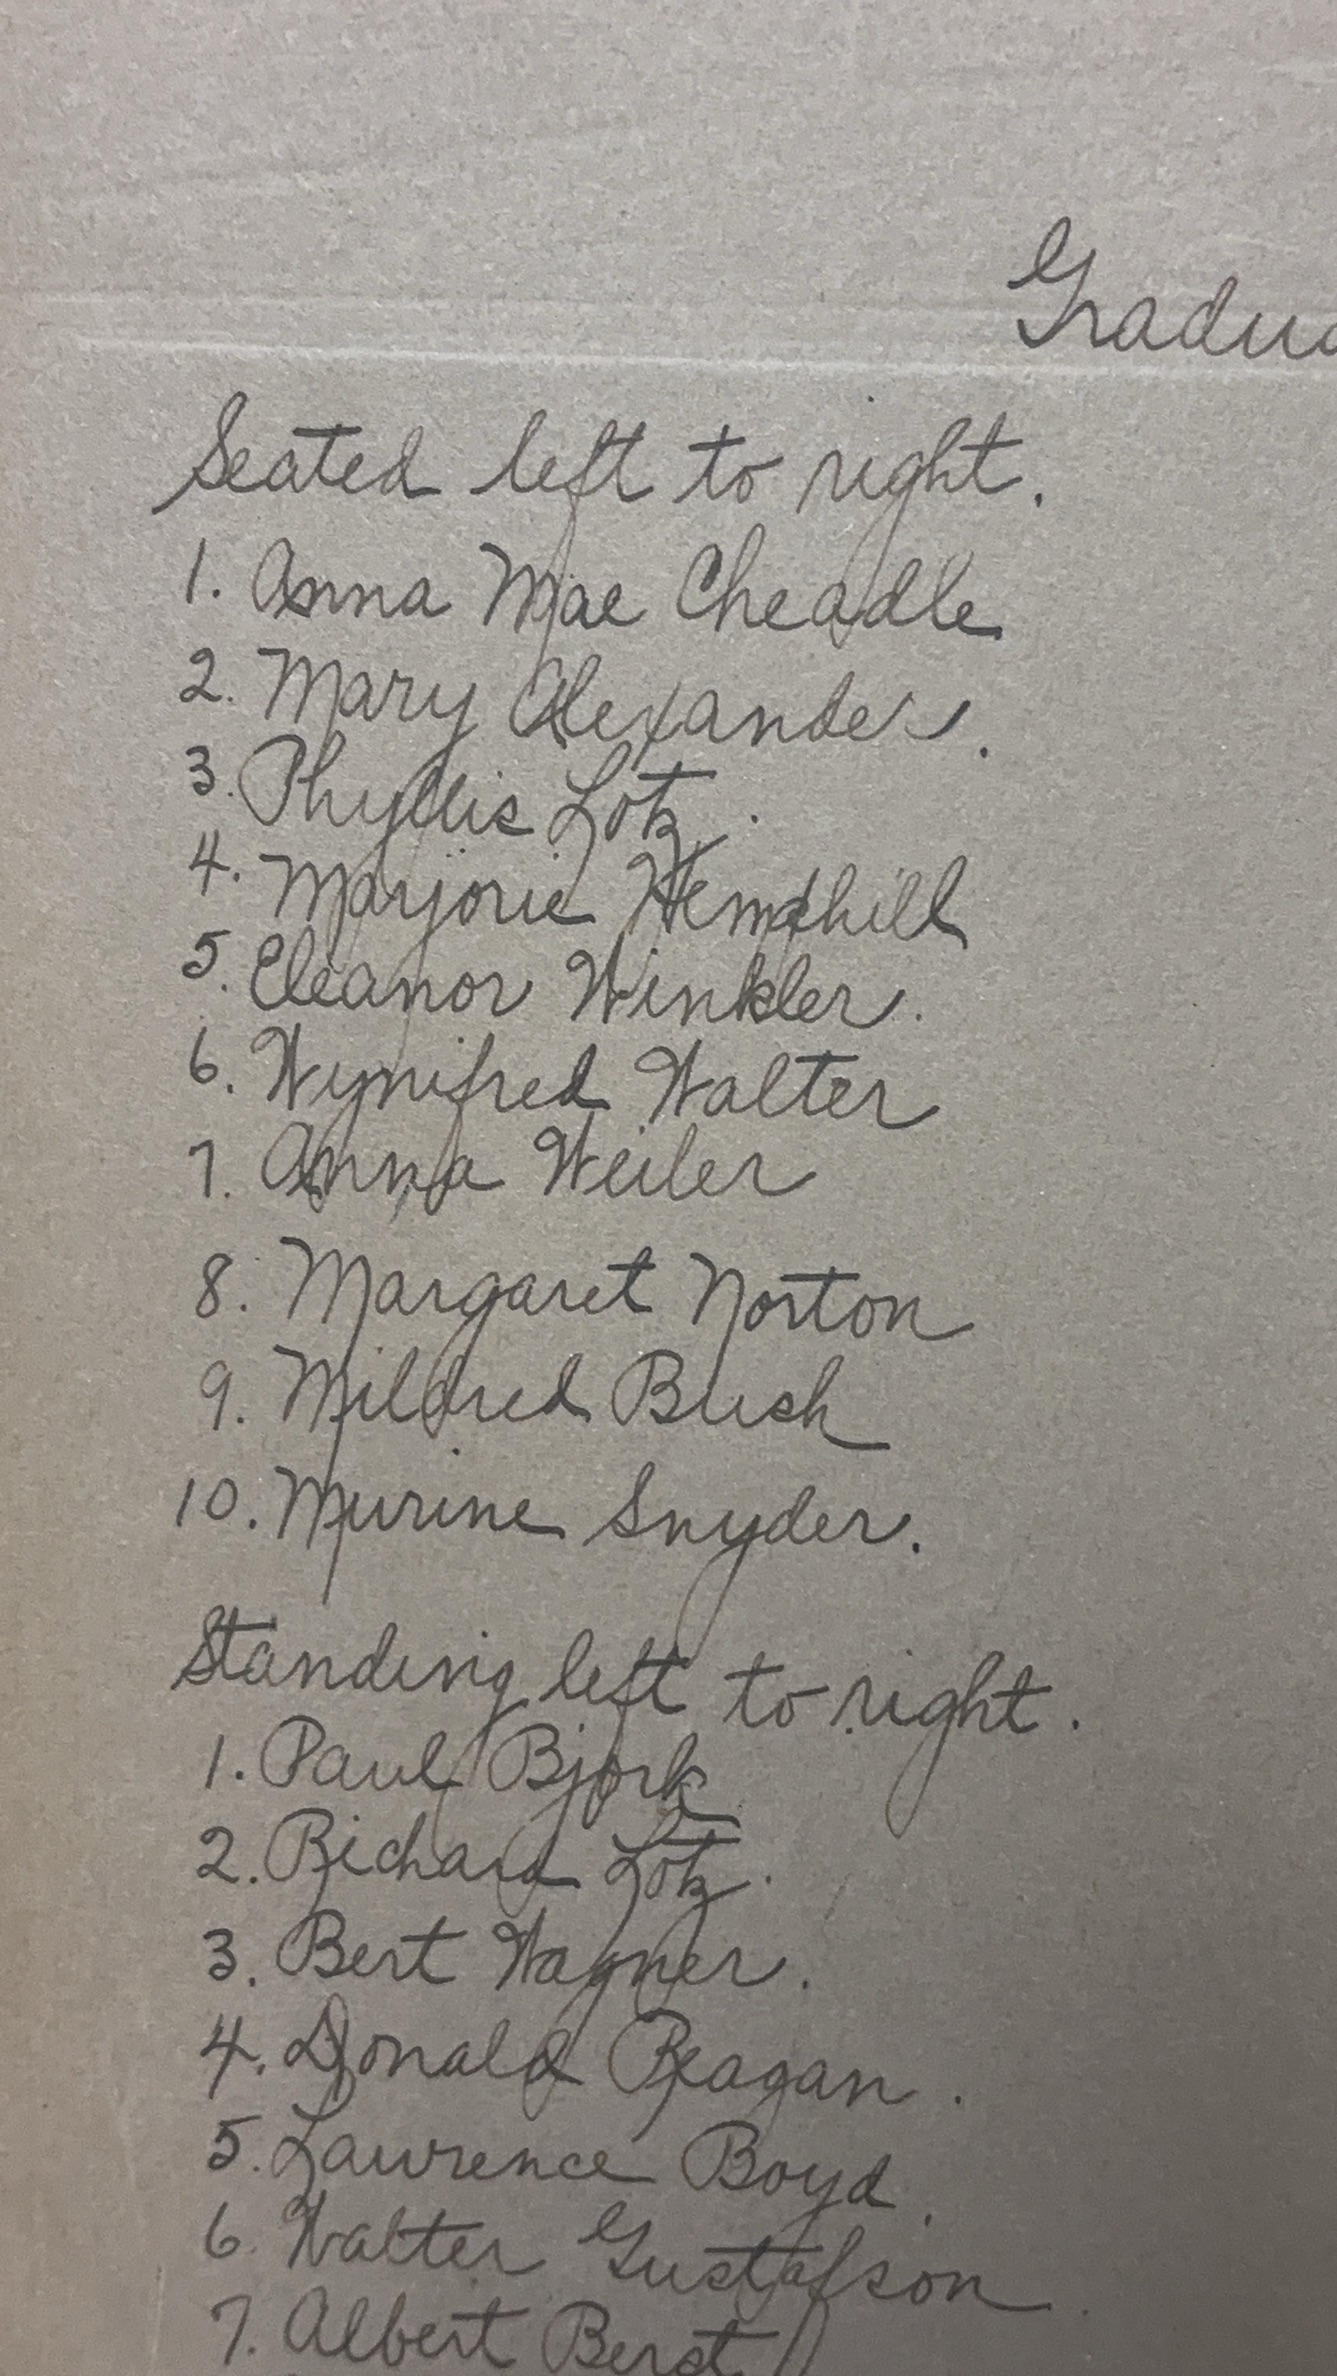 Gradua
Seated left to right.
1. Anna Mae Cheadle
2. Mary Alexander.
3. Phyllis Lotz.
4. Marjorie Hemphill
5. Eleanor Winkler.
6. Wynifred Walter
7. Anna Weiler
8. Margaret Norton
9. Mildred Bush
10. Murine Snyder.
Standing left to right.
1. Paul Bjork
2. Richard Lotz.
3. Bert Wagner.
4. Donald Reagan.
5. Lawrence Boyd.
6. Walter Gustafson.
7. Albert Berst